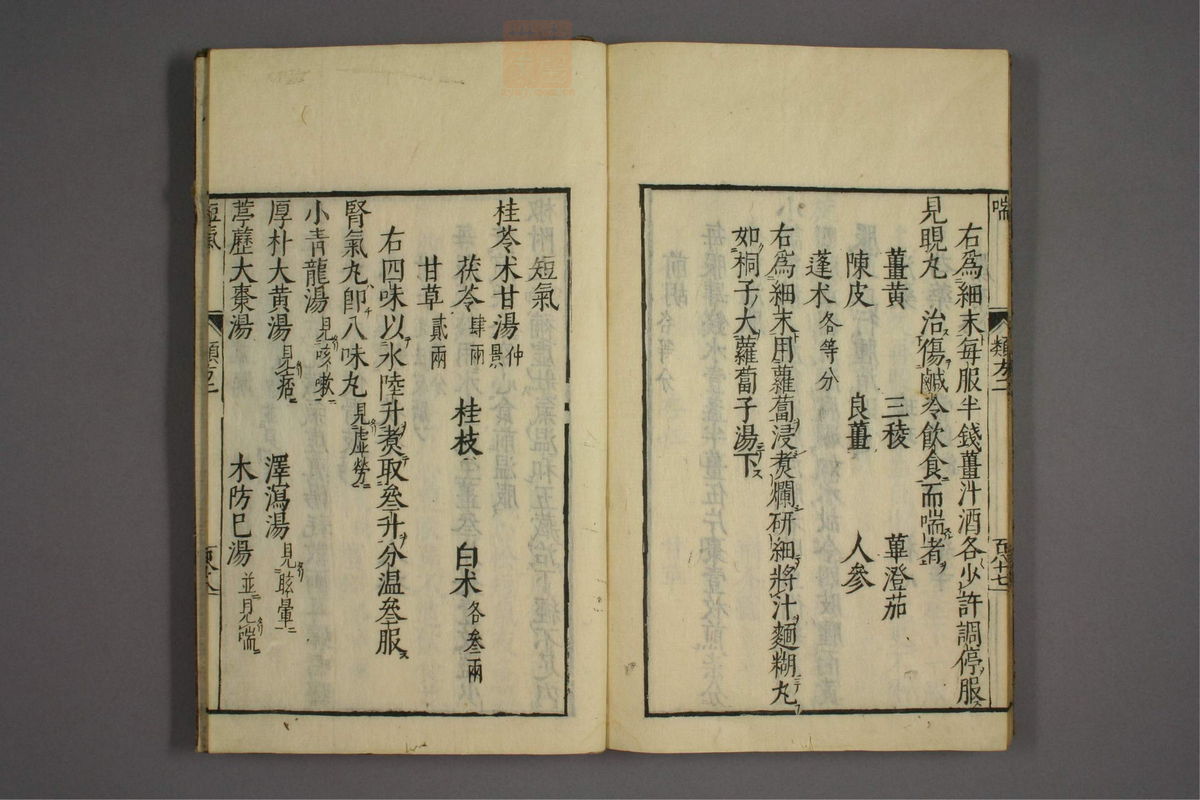 喘
類方二
百八十七
右爲細末每服半錢薑汁酒各少許調停服
見睍丸 治傷鹹冷飲食而喘者
薑黄 三稜 蓽澄茄
陳皮 良薑 人參
蓬朮各等分
右爲細末用蘿蔔浸煑爛研細將汁麵糊丸
如桐子大蘿蔔子湯下
短氣
桂苓朮甘湯仲景
茯苓肆兩 桂枝 白朮各叄兩
甘草貳兩
右四味以水陸升煑取叄升分温叄服
腎氣丸即八味丸見虛勞
小青龍湯見咳嗽
厚朴大黄湯見痞 澤瀉湯見眩暈
葶藶大棗湯 木防已湯並見喘
短氣